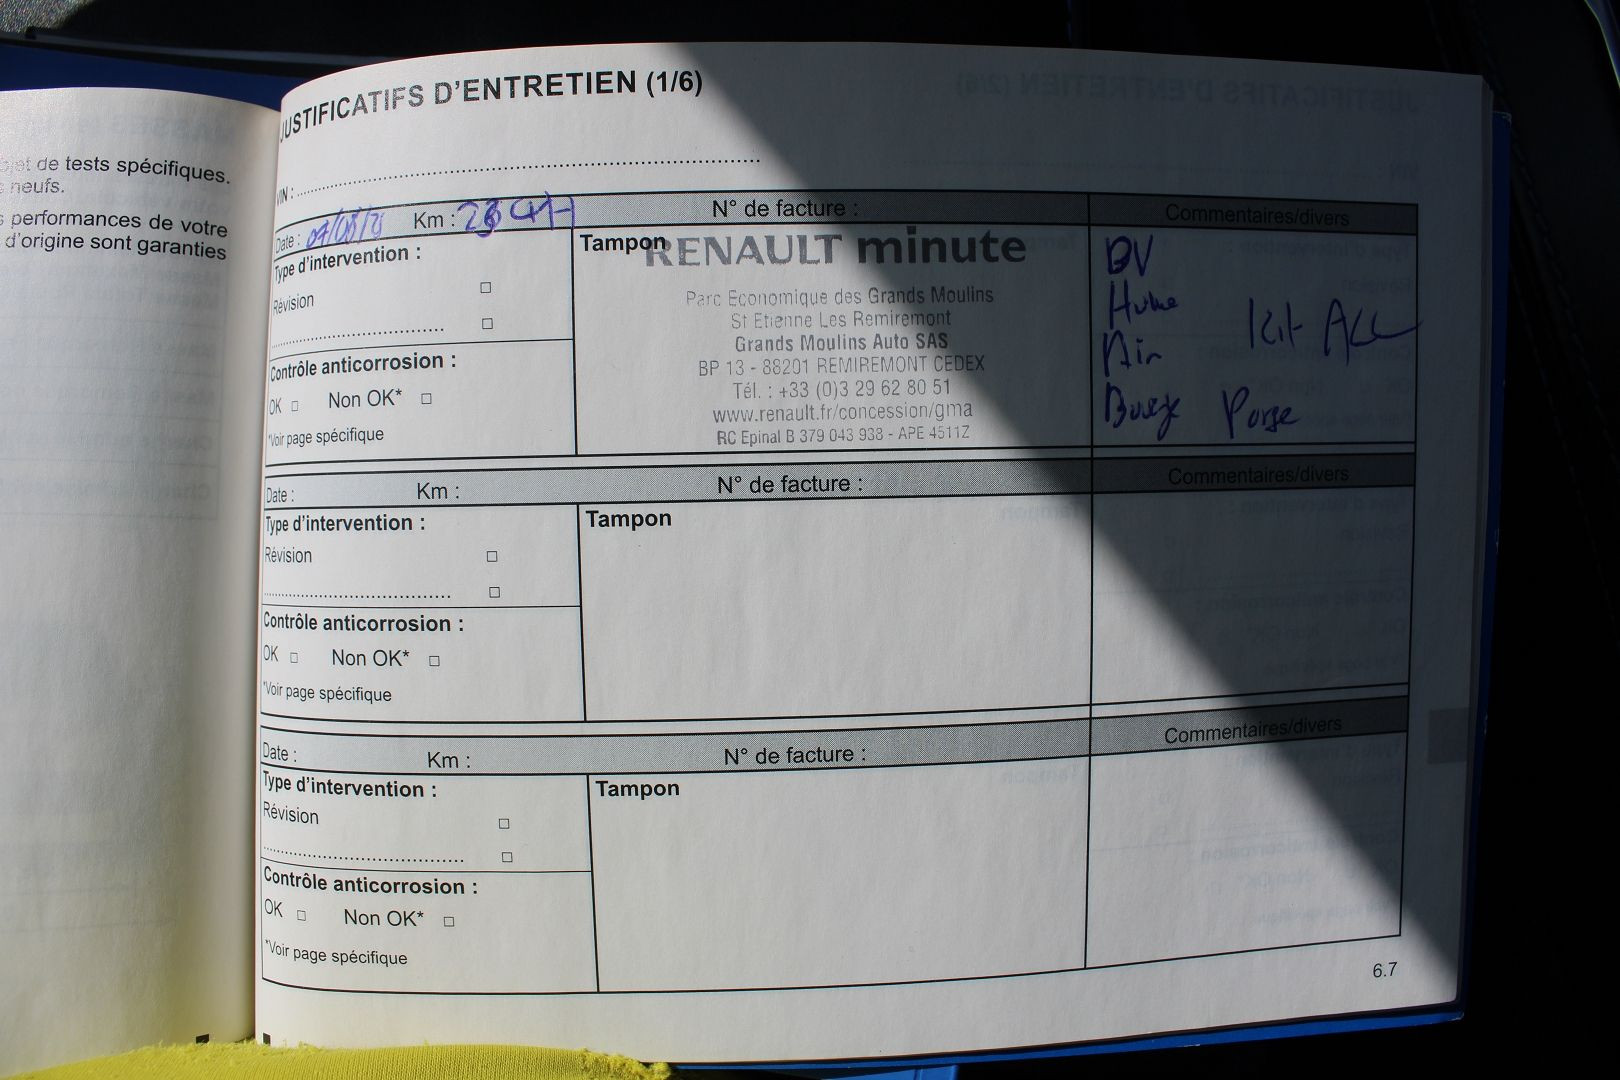 et de tests spécifiques.
neufs.
performances de votre
d'origine sont garanties
JUSTIFICATIFS D'ENTRETIEN (1/6)
VIN : ..........................................................................................
Date : Km : N° de facture : Commentaires/divers
Type d'intervention :
Révision □
........................................ □
Contrôle anticorrosion :
OK □ Non OK* □
*Voir page spécifique
Tampon
RENAULT minute
Parc Economique des Grands Moulins
St Etienne Les Remiremont
Grands Moulins Auto SAS
BP 13 - 88201 REMIREMONT CEDEX
Tél. : +33 (0)3 29 62 80 51
www.renault.fr/concession/gma
RC Epinal B 379 043 938 - APE 4511Z
BV
Huile
Air Kit
Purge
Date : Km : N° de facture : Commentaires/divers
Type d'intervention :
Révision □
........................................ □
Contrôle anticorrosion :
OK □ Non OK* □
*Voir page spécifique
Tampon
Date : Km : N° de facture : Commentaires/divers
Type d'intervention :
Révision □
........................................ □
Contrôle anticorrosion :
OK □ Non OK* □
*Voir page spécifique
Tampon
6.7